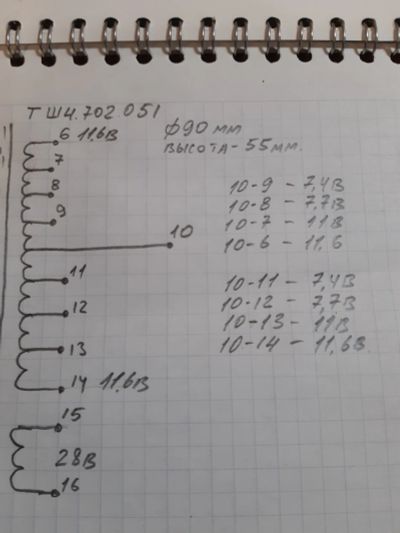 ТШ4.702.051
6 11,6В
⌀90 мм
ВЫСОТА - 55мм.
7
8
9
10
10-9 - 7,4В
10-8 - 7,7В
10-7 - 11В
10-6 - 11,6
11
12
13
14 11,6В
10-11 - 7,4В
10-12 - 7,7В
10-13 - 11В
10-14 - 11,6В
15
28В
16